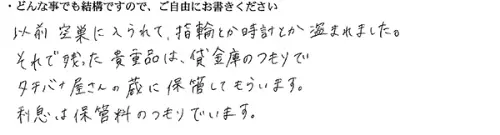 ・どんな事でも結構ですので、ご自由にお書きください
以前 空巣に入られて、指輪とか時計とか盗まれました。
それで残った貴重品は、貸金庫のつもりで
タチバナ屋さんの蔵に保管してもらいます。
利息は保管料のつもりでいます。